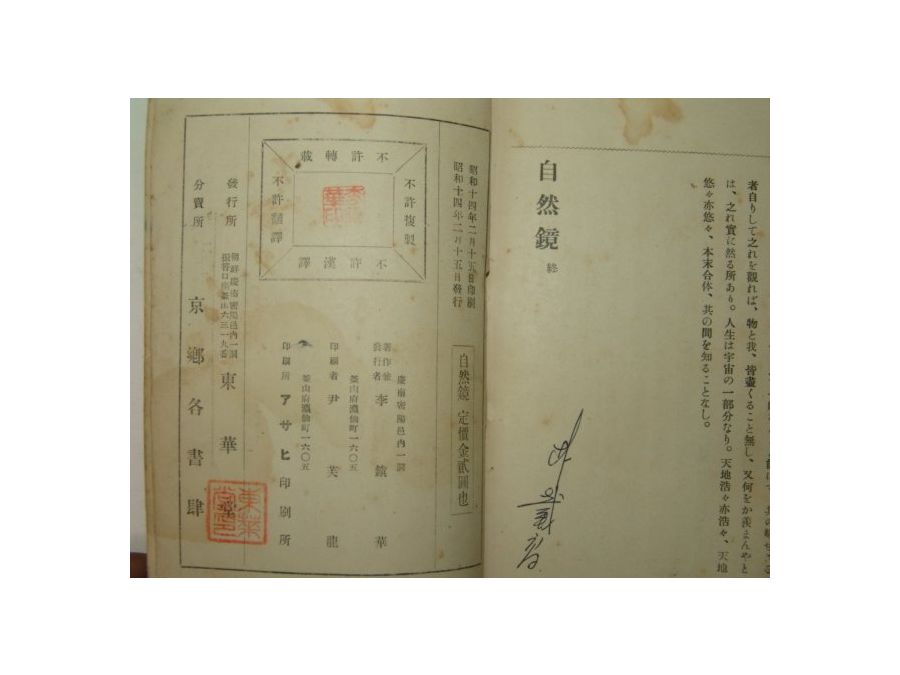 者自りして之れを觀れば、物と我、皆盡くること無し、又何をか羨まんやと
は、之れ實に然る所あり。人生は宇宙の一部分なり。天地浩々亦浩々、天地
悠々亦悠々、本末合体、其の間を知ることなし。
自然鏡 終
昭和十四年二月十五日印刷
昭和十四年二月十五日發行
自然鏡 定價金貳圓也
不許轉載
不許複製
不許漢譯
不許諺譯
慶南密陽邑內一洞
著作兼發行者 李鎮華
釜山府瀛仙町一六〇五
印刷者 尹芙龍
釜山府瀛仙町一六〇五
印刷所 アサヒ印刷所
朝鮮慶南密陽邑內一洞
振替口座釜山六三一九番
發行所 東華堂
分賣所 京鄕各書肆